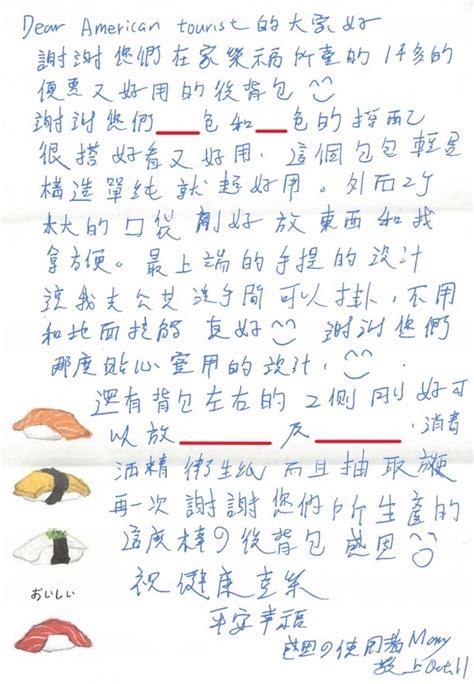 Dear American tourist的大家好
謝謝您們在家樂福所賣的1千多的
便惠又好用的後背包
謝謝您們 色和 色的搭配
很搭好看又好用,這個包包輕量
構造單純就超好用。外面2個
大的口袋剛好放東西和找
拿方便。最上端的手提的設計
讓我去公共洗手間可以掛,不用
和地面接觸 真好 謝謝您們
那麼貼心實用的設計,
還有背包左右的2側剛好可
以放 及 ,消毒
酒精 衛生紙 而且抽取方便
再一次謝謝您們所生產的
這麼棒の後背包 感恩
祝健康喜樂
平安幸福
おいしい
感恩の使用者Mony
敬上Oct.11